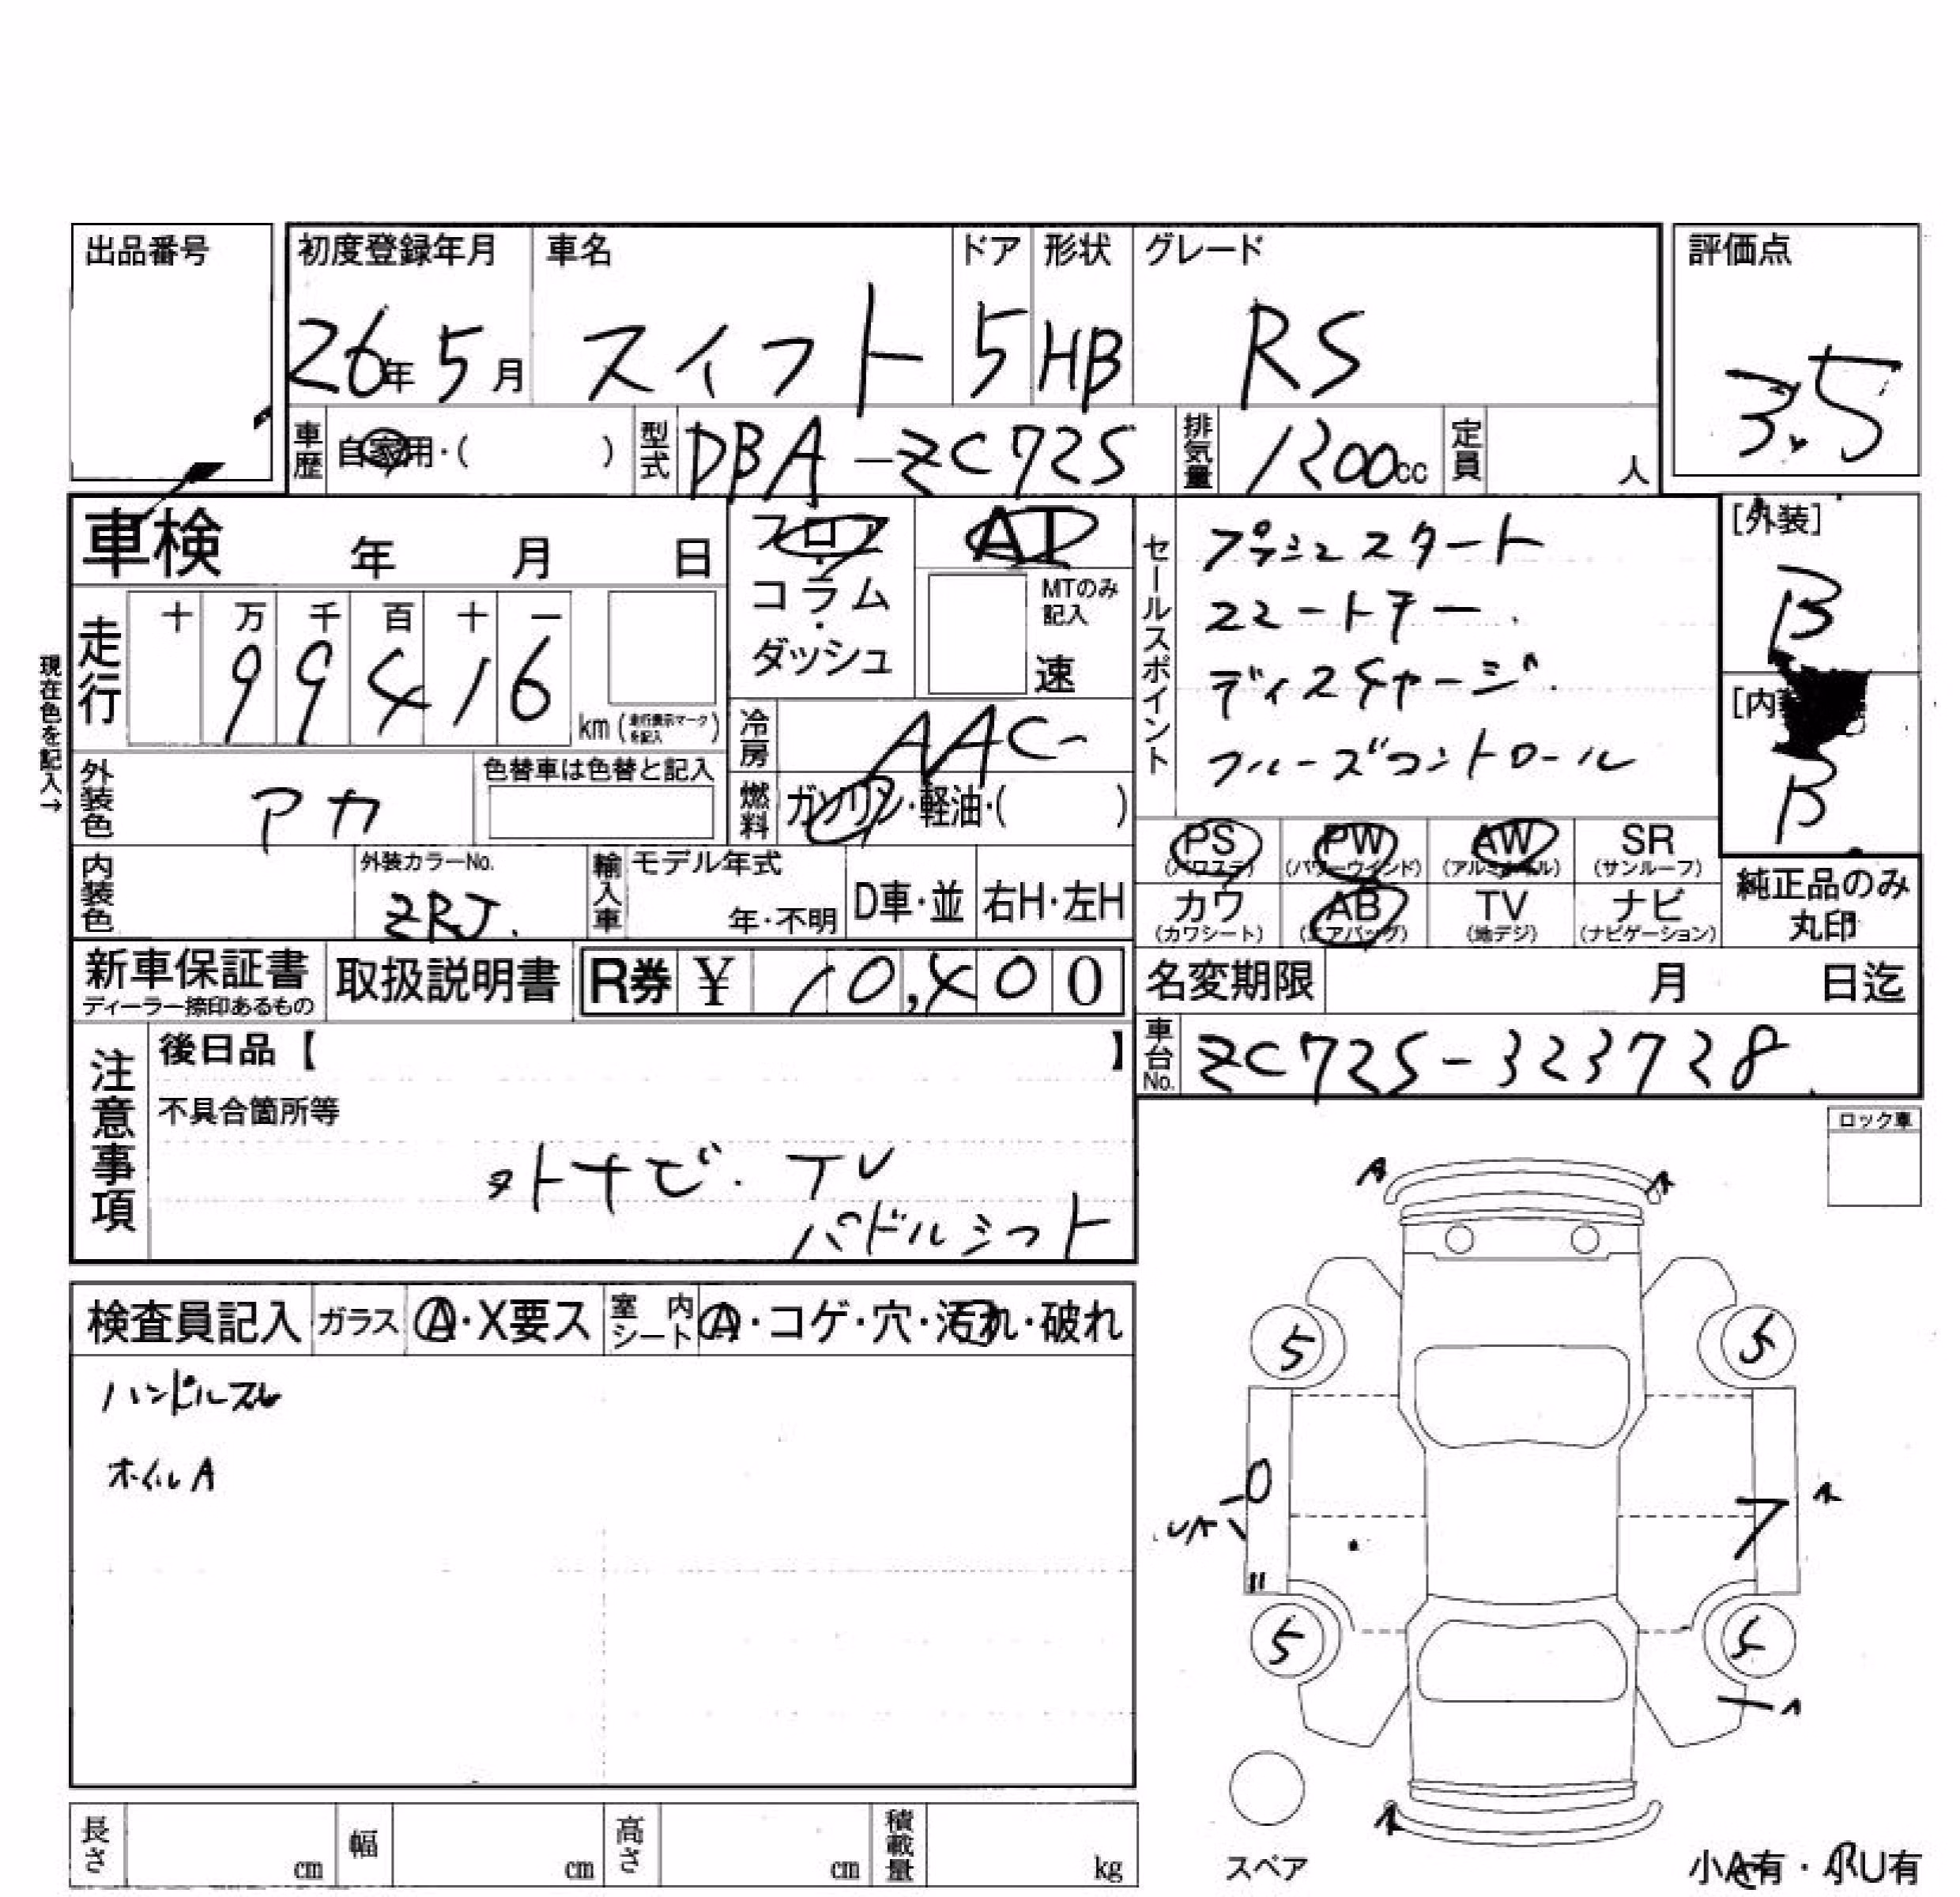 出品番号
初度登録年月 車名 ドア 形状 グレード 評価点
26年 5月 スイフト 5 HB RS 3.5
車歴 自家用・( ) 型式 DBA-ZC72S 排気量 1200cc 定員 人
車検 年 月 日
フロア・コラム・ダッシュ
AT
MTのみ記入
速
セールスポイント
プッシュスタート
スマートキー.
ディスチャージ.
クルーズコントロール
[外装]
B
[内装]
B
現在色を記入→
走行 十 万 千 百 十 一
99416 km (走行表示マークを記入)
冷房 AAC
燃料 ガソリン・軽油・( )
外装色 アカ 色替車は色替と記入
内装色 外装カラーNo. ZRJ. 輸入車 モデル年式 年・不明 D車・並 右H・左H
PS (パワステ) PW (パワーウインド) AW (アルミホイール) SR (サンルーフ)
カワ (カワシート) AB (エアバッグ) TV (地デジ) ナビ (ナビゲーション)
純正品のみ丸印
新車保証書 ディーラー捺印あるもの 取扱説明書 R券 ¥ 10,400
名変期限 月 日迄
車台No. ZC72S-323728
注意事項
後日品【 】
不具合箇所等
外ナビ. TV
パドルシフト
ロック車
検査員記入 ガラス A・X要ス 室内シート A・コゲ・穴・汚れ・破れ
ハンドルスレ
ホイルA
A A
5 5
UA
7
5 5
A
スペア
小A有・小U有
長さ cm 幅 cm 高さ cm 積載量 kg